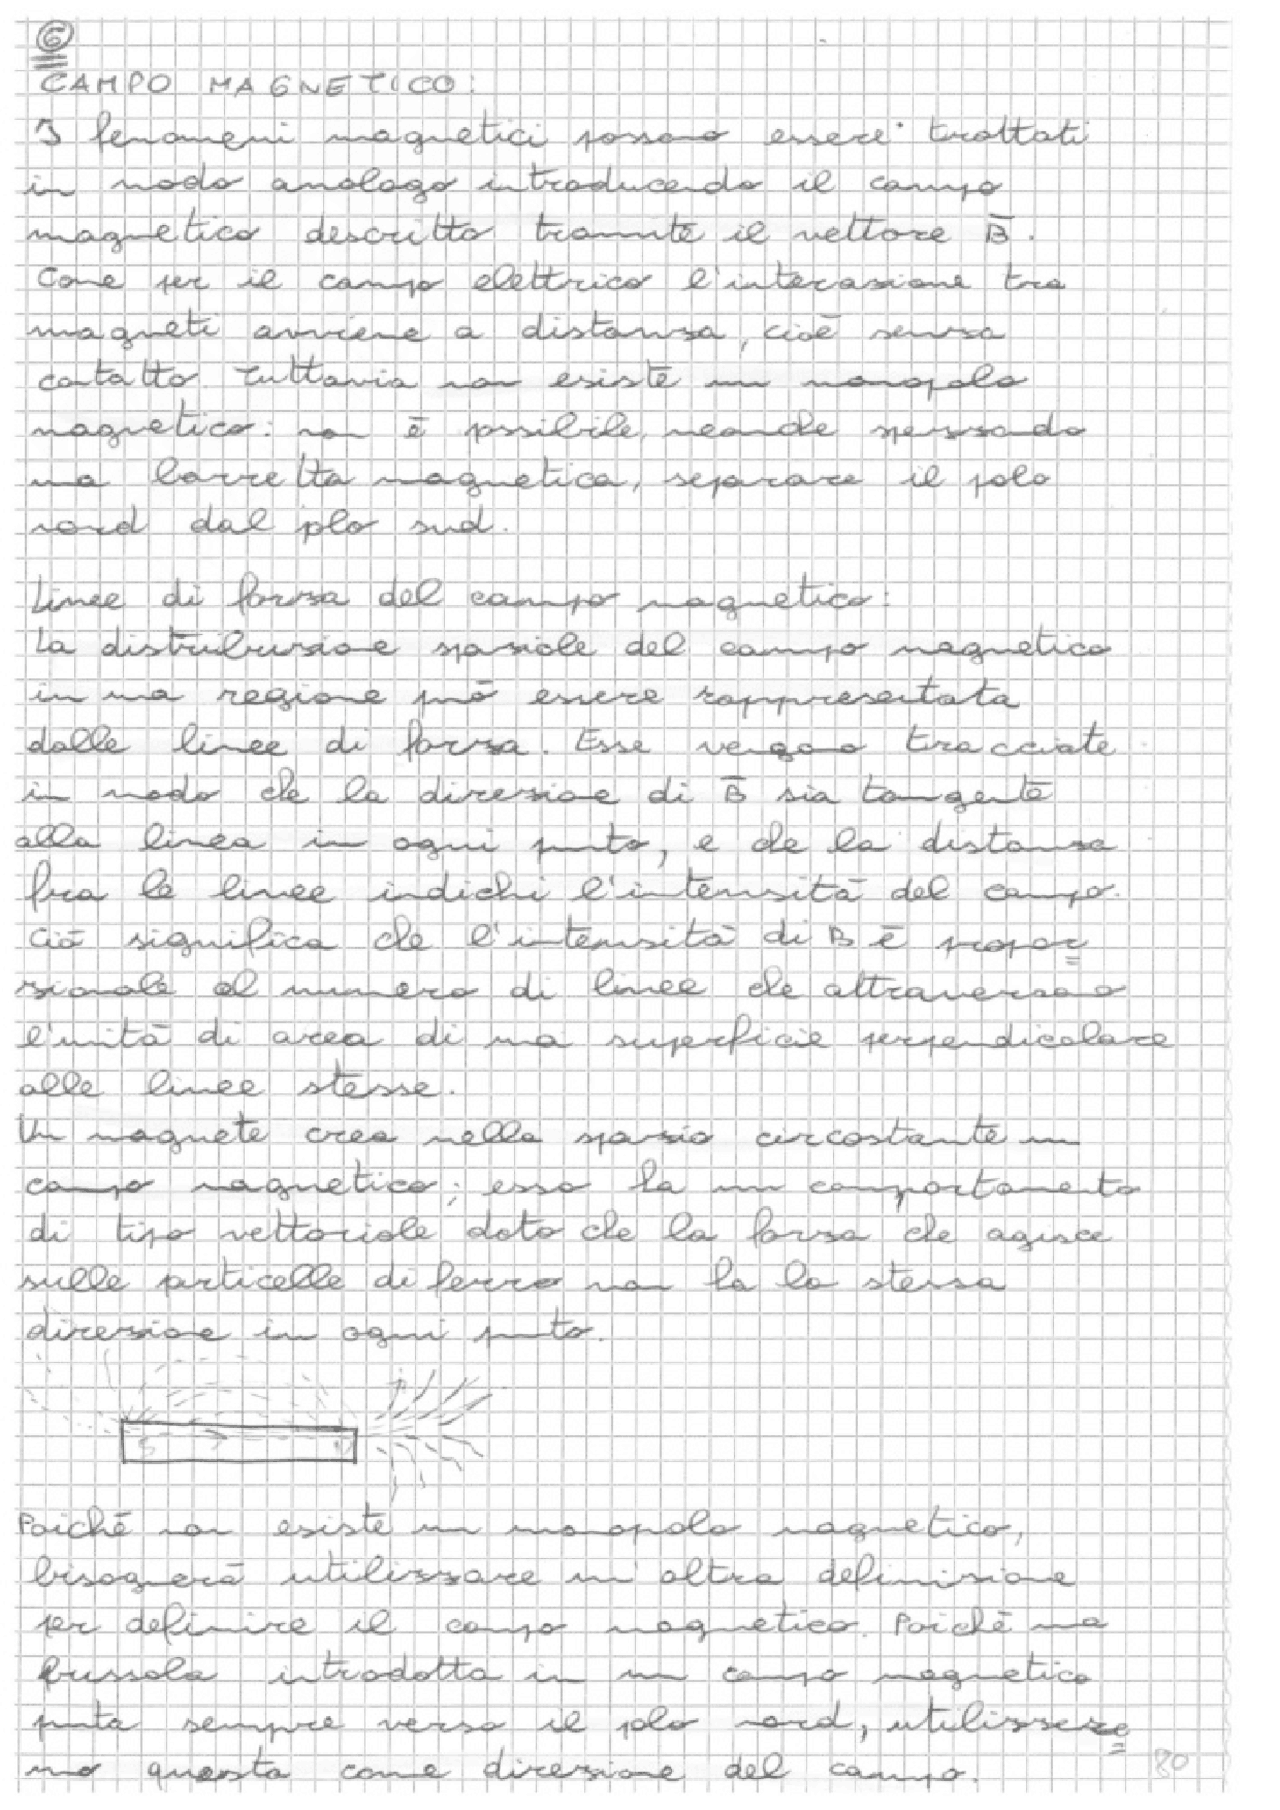 6
CAMPO MAGNETICO:
I fenomeni magnetici possono essere trattati
in modo analogo introducendo il campo
magnetico descritto tramite il vettore B̄.
Come per il campo elettrico l'interazione tra
magneti avviene a distanza, cioè senza
contatto. Tuttavia non esiste un monopolo
magnetico: non è possibile, neanche spezzando
una barretta magnetica, separare il polo
nord dal polo sud.
Linee di forza del campo magnetico:
La distribuzione spaziale del campo magnetico
in una regione può essere rappresentata
dalle linee di forza. Esse vengono tracciate
in modo che la direzione di B̄ sia tangente
alla linea in ogni punto, e che la distanza
fra le linee indichi l'intensità del campo.
Ciò significa che l'intensità di B è propor=
zionale al numero di linee che attraversano
l'unità di area di una superficie perpendicolare
alle linee stesse.
Un magnete crea nello spazio circostante un
campo magnetico; esso ha un comportamento
di tipo vettoriale dato che la forza che agisce
sulle particelle di ferro non ha la stessa
direzione in ogni punto.
S N
Poiché non esiste un monopolo magnetico,
bisognerà utilizzare un'altra definizione
per definire il campo magnetico. Poiché una
bussola introdotta in un campo magnetico
punta sempre verso il polo nord, utilizzere=
mo questa come direzione del campo.
80